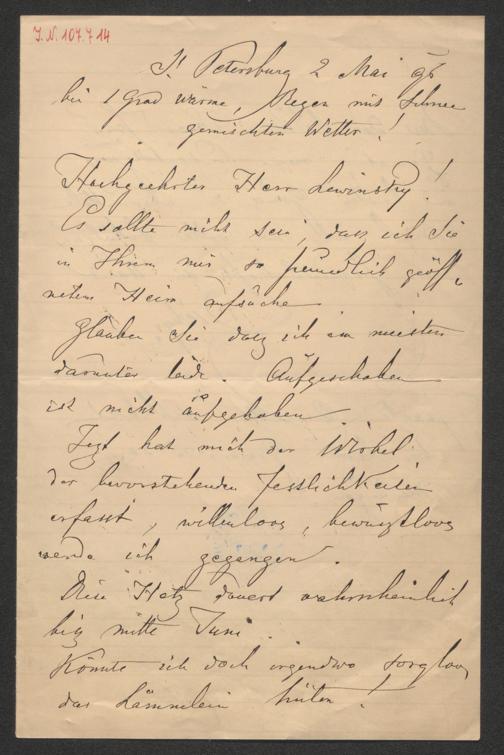 J. N. 107.714
St. Petersburg 2 Mai 96
bei 1 Grad Wärme, Regen mit Schnee
gemischten Wetter!
Hochgeehrter Herr Lewinsky!
Es sollte nicht sein, dass ich Sie
in Ihrem mir so freundlich geöff-
neten Heim aufsuche
Glauben Sie dasz ich am meisten
darunter leide. Aufgeschoben
ist nicht aufgehoben
Jetzt hat mich der Wirbel
der bevorstehenden Festlichkeiten
erfasst, willenloos, bewusztloos
werde ich gegangen.
Diese Hetz dauert wahrscheinlich
bisz mitte Juni.
Könnte ich doch irgendwo sorgloos
das Lämmelein hüten!